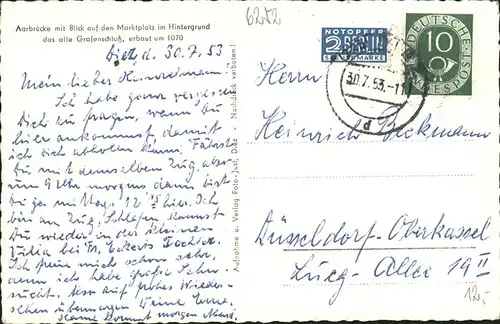 Aarbrücke mit Blick auf den Marktplatz im Hintergrund
das alte Grafenschloß, erbaut um 1070
6252
Diez, d. 30.7.53
Mein lieber
Ich habe ganz vergessen
Dich zu fragen, wann Du
hier ankommst, damit
ich Dich abholen kann. Fährst
Du mit demselben Zug, aber
um 9 Uhr morgens dann bist
Du gegen mittags 12 hier. Ich
bin am Zug. Schlafen kannst
Du wieder in der kleinen
Villa bei Fr.
Ich freue mich schon sehr,
denn ich habe große Sehn-
sucht. Also auf frohes Wieder-
sehen
morgen Abend.
Aufnahme u. Verlag Foto-Jost, Diez · Nachdruck verboten!
NOTOPFER
2 BERLIN
STEUERMARKE
DEUTSCHE
10
BUNDESPOST
30.7.53.-11
Herrn
Heinrich Beckmann
Düsseldorf-Oberkassel
Lueg-Allee 19 II
12,-